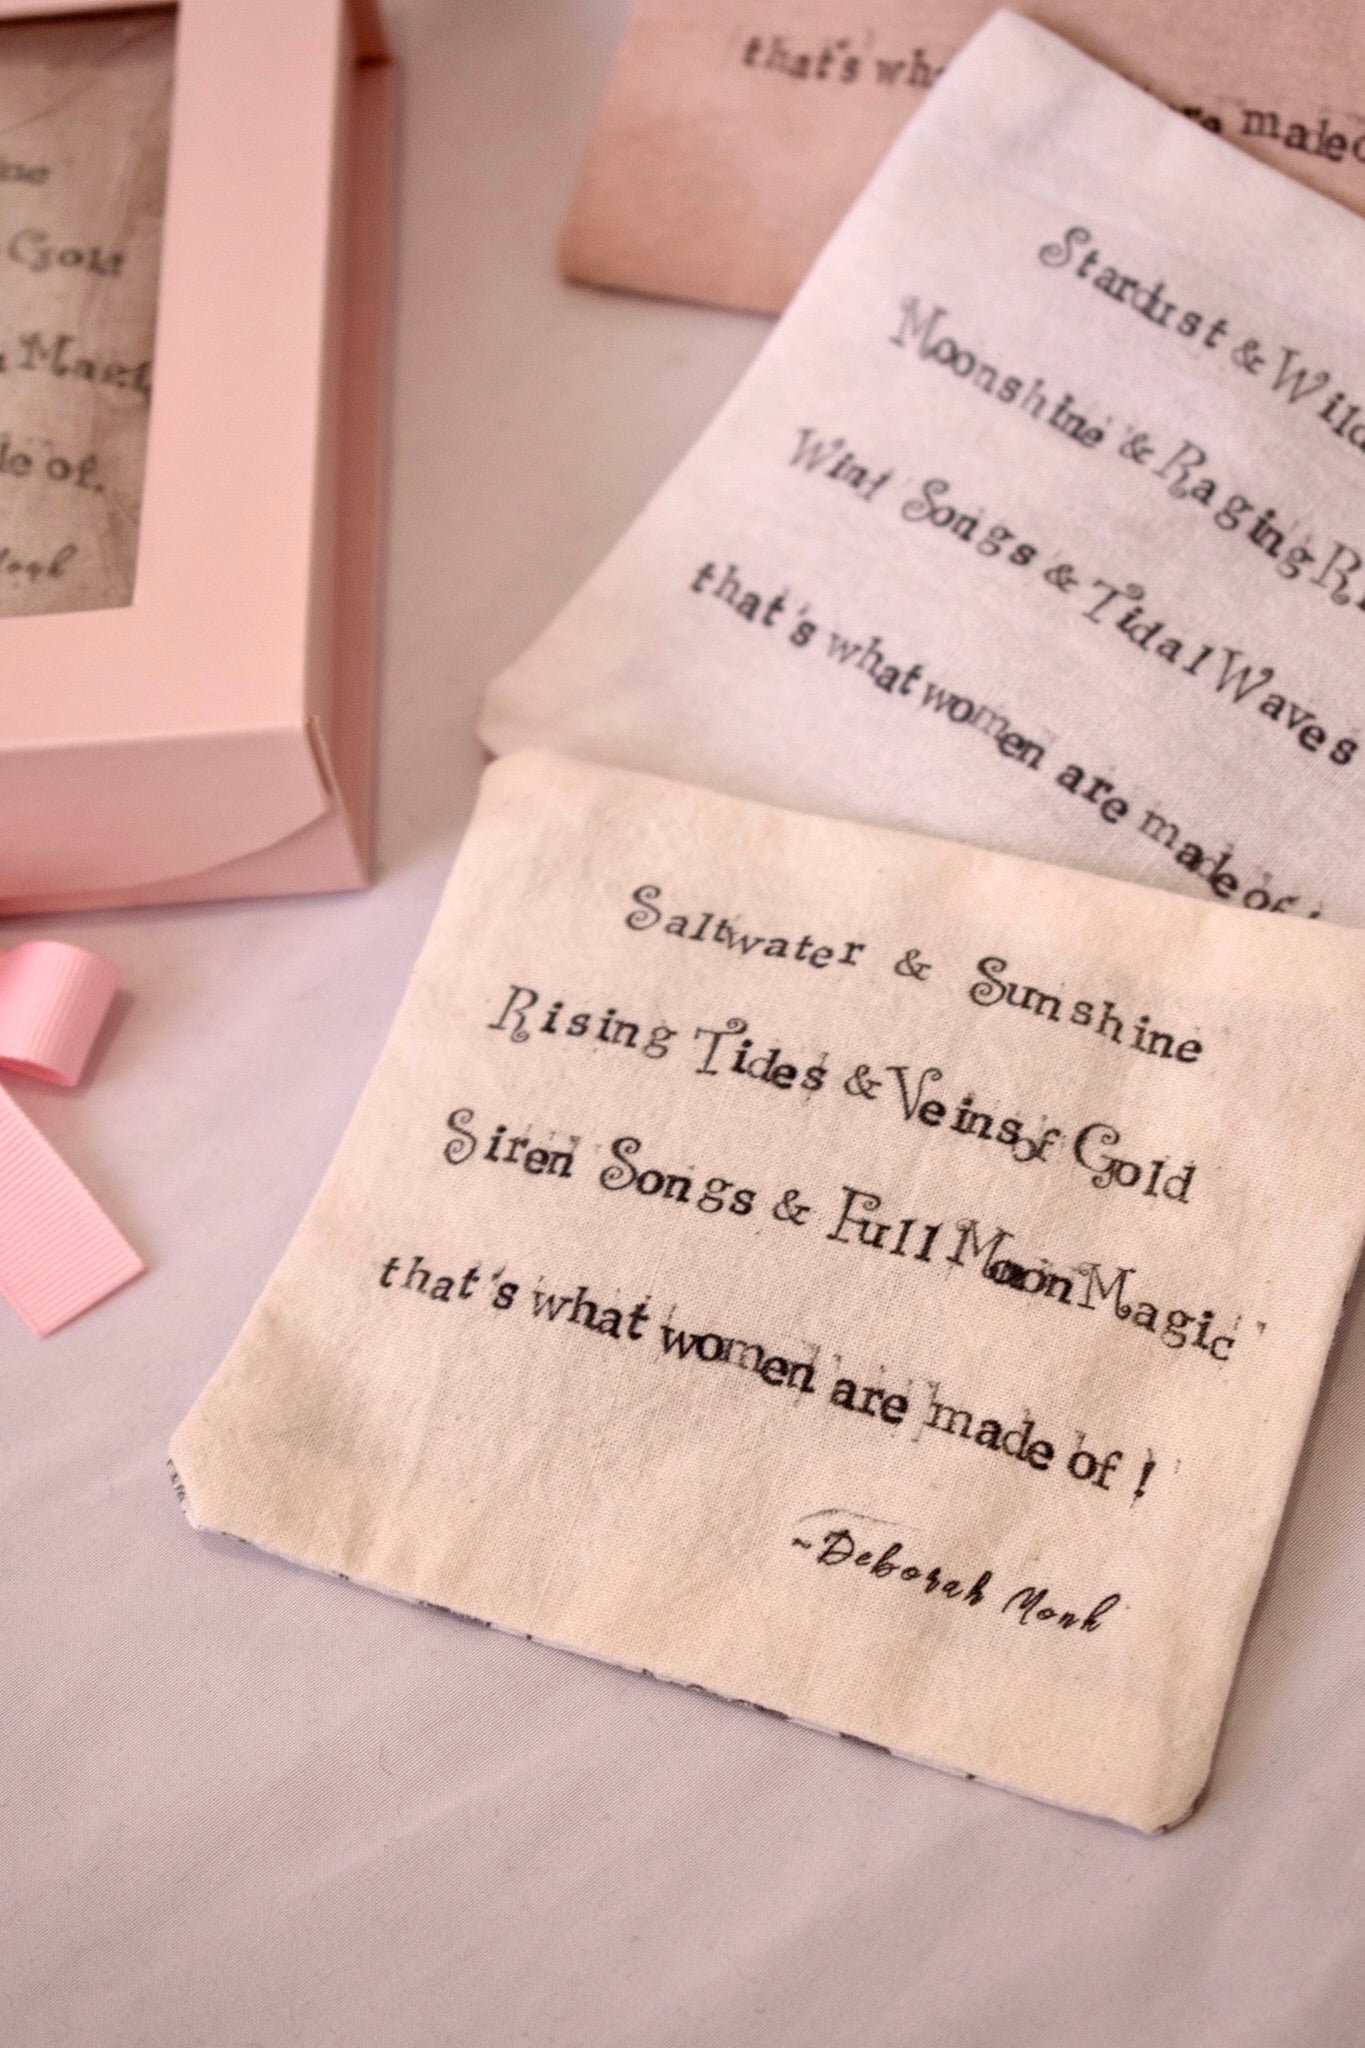 Gold
de of.
that's
made
Stardust &
Moonshine & Raging
Songs & Tidal Waves
that's what women are made of
Saltwater & Sunshine
Rising Tides & Veins of Gold
Siren Songs & Full Moon Magic
that's what women are made of !
~Deborah Monk